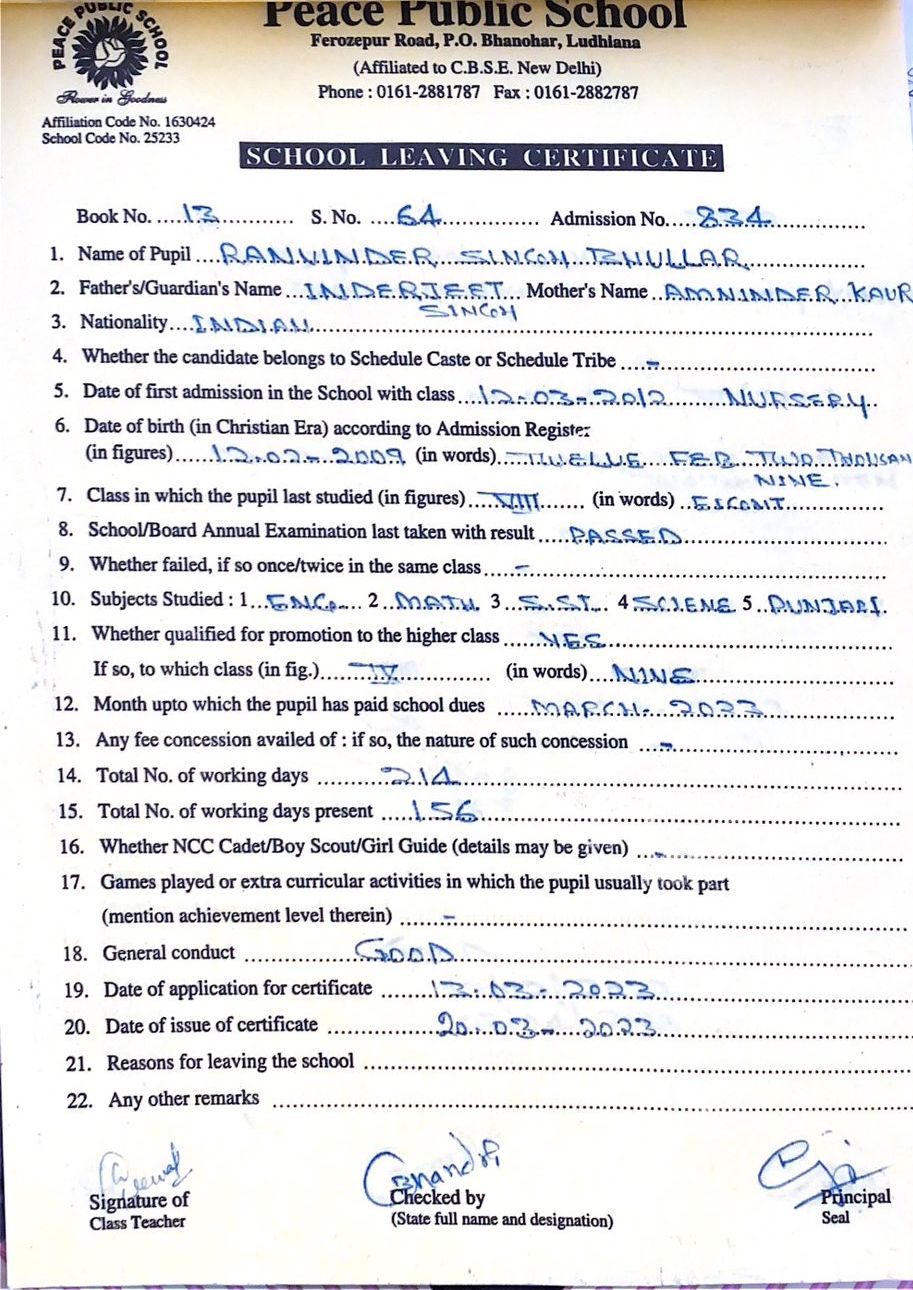 PEACE PUBLIC SCHOOL
Flower in Goodness
Peace Public School
Ferozepur Road, P.O. Bhanohar, Ludhiana
(Affiliated to C.B.S.E. New Delhi)
Phone : 0161-2881787 Fax : 0161-2882787
Affiliation Code No. 1630424
School Code No. 25233
SCHOOL LEAVING CERTIFICATE
Book No. ....13............ S. No. ....64............... Admission No.....834..............
1. Name of Pupil ...RANVINDER SINGH BHULLAR...................
2. Father's/Guardian's Name ...INDERJEET... Mother's Name ..AMNINDER KAUR
SINGH
3. Nationality....INDIAN...................
4. Whether the candidate belongs to Schedule Caste or Schedule Tribe ....-...................
5. Date of first admission in the School with class ...12-03-2012........NURSERY..
6. Date of birth (in Christian Era) according to Admission Register
(in figures).....12-02-2009 (in words)..TWELVE FEB TWO THOUSAN
NINE.
7. Class in which the pupil last studied (in figures) ..VIII....... (in words) ..EIGHT................
8. School/Board Annual Examination last taken with result .....PASSED...................
9. Whether failed, if so once/twice in the same class.....-...................
10. Subjects Studied : 1...ENG.... 2 ..MATH. 3 ...S.ST... 4 SCIENE 5 ..PUNJABI.
11. Whether qualified for promotion to the higher class .....YES...................
If so, to which class (in fig.)......IX............... (in words) ...NINE...................
12. Month upto which the pupil has paid school dues .....MARCH- 2023...................
13. Any fee concession availed of : if so, the nature of such concession ....-...................
14. Total No. of working days ...........214...................
15. Total No. of working days present .....156...................
16. Whether NCC Cadet/Boy Scout/Girl Guide (details may be given) ...-...................
17. Games played or extra curricular activities in which the pupil usually took part
(mention achievement level therein) .......-...................
18. General conduct ..................GOOD...................
19. Date of application for certificate ........13-03-2023...................
20. Date of issue of certificate ..................20-03-2023...................
21. Reasons for leaving the school ...................
22. Any other remarks ...................
Signature of
Class Teacher
Checked by
(State full name and designation)
Principal
Seal